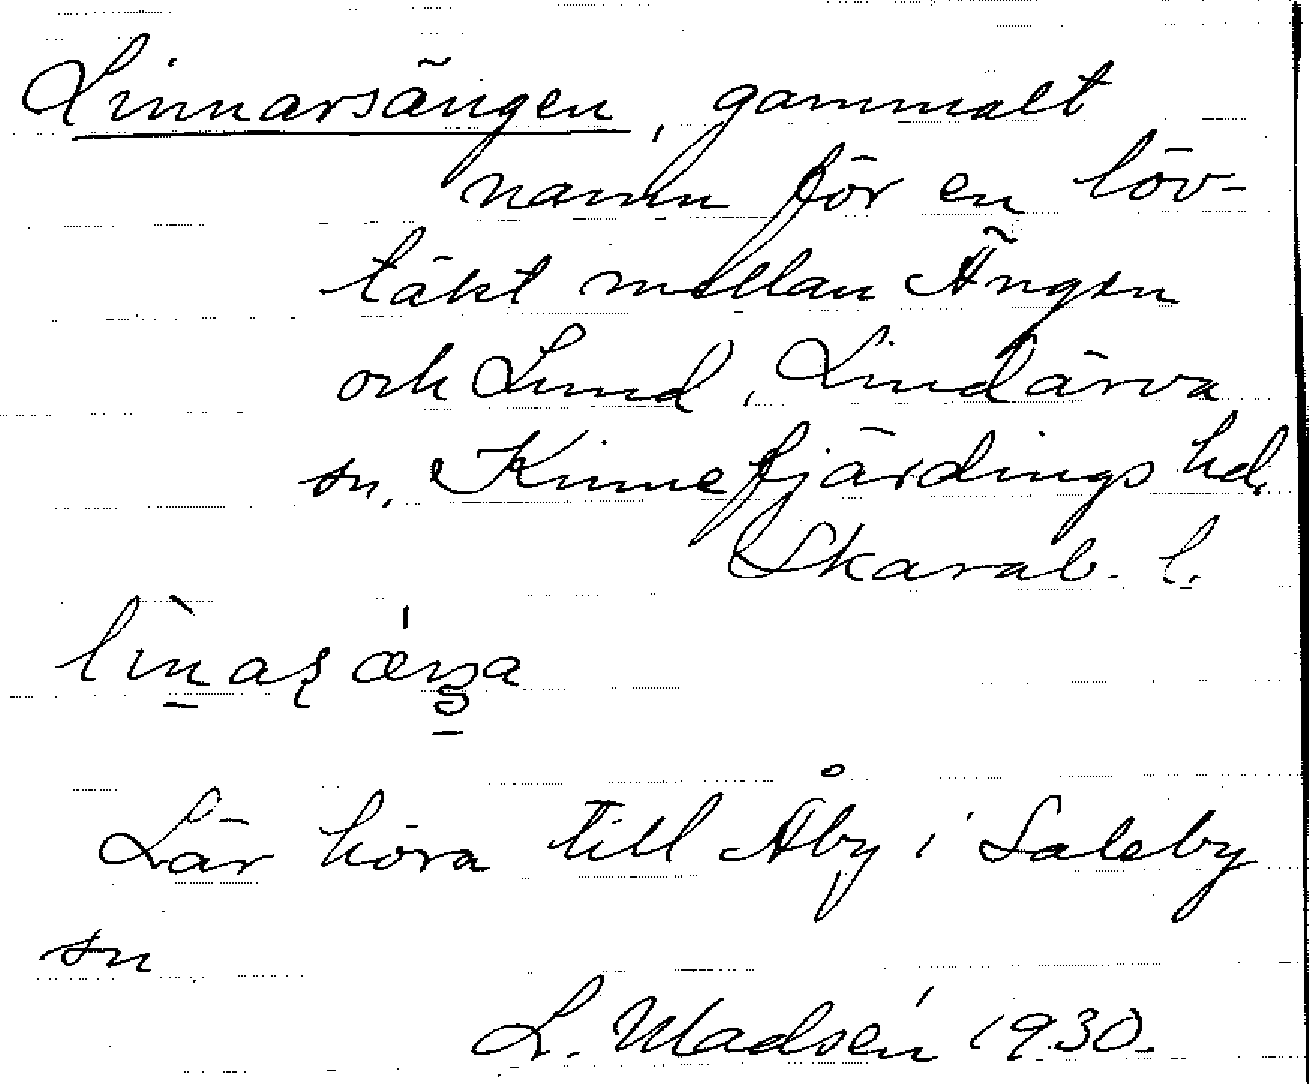 Linnarsängen, gammalt
namn för en löv-
täkt mellan Ängen
och Lund, Lindärva
sn, Kinnefjärdings hd,
Skarab. l.
Lär höra till Åby i Saleby
sn
L. Madsén 1930.